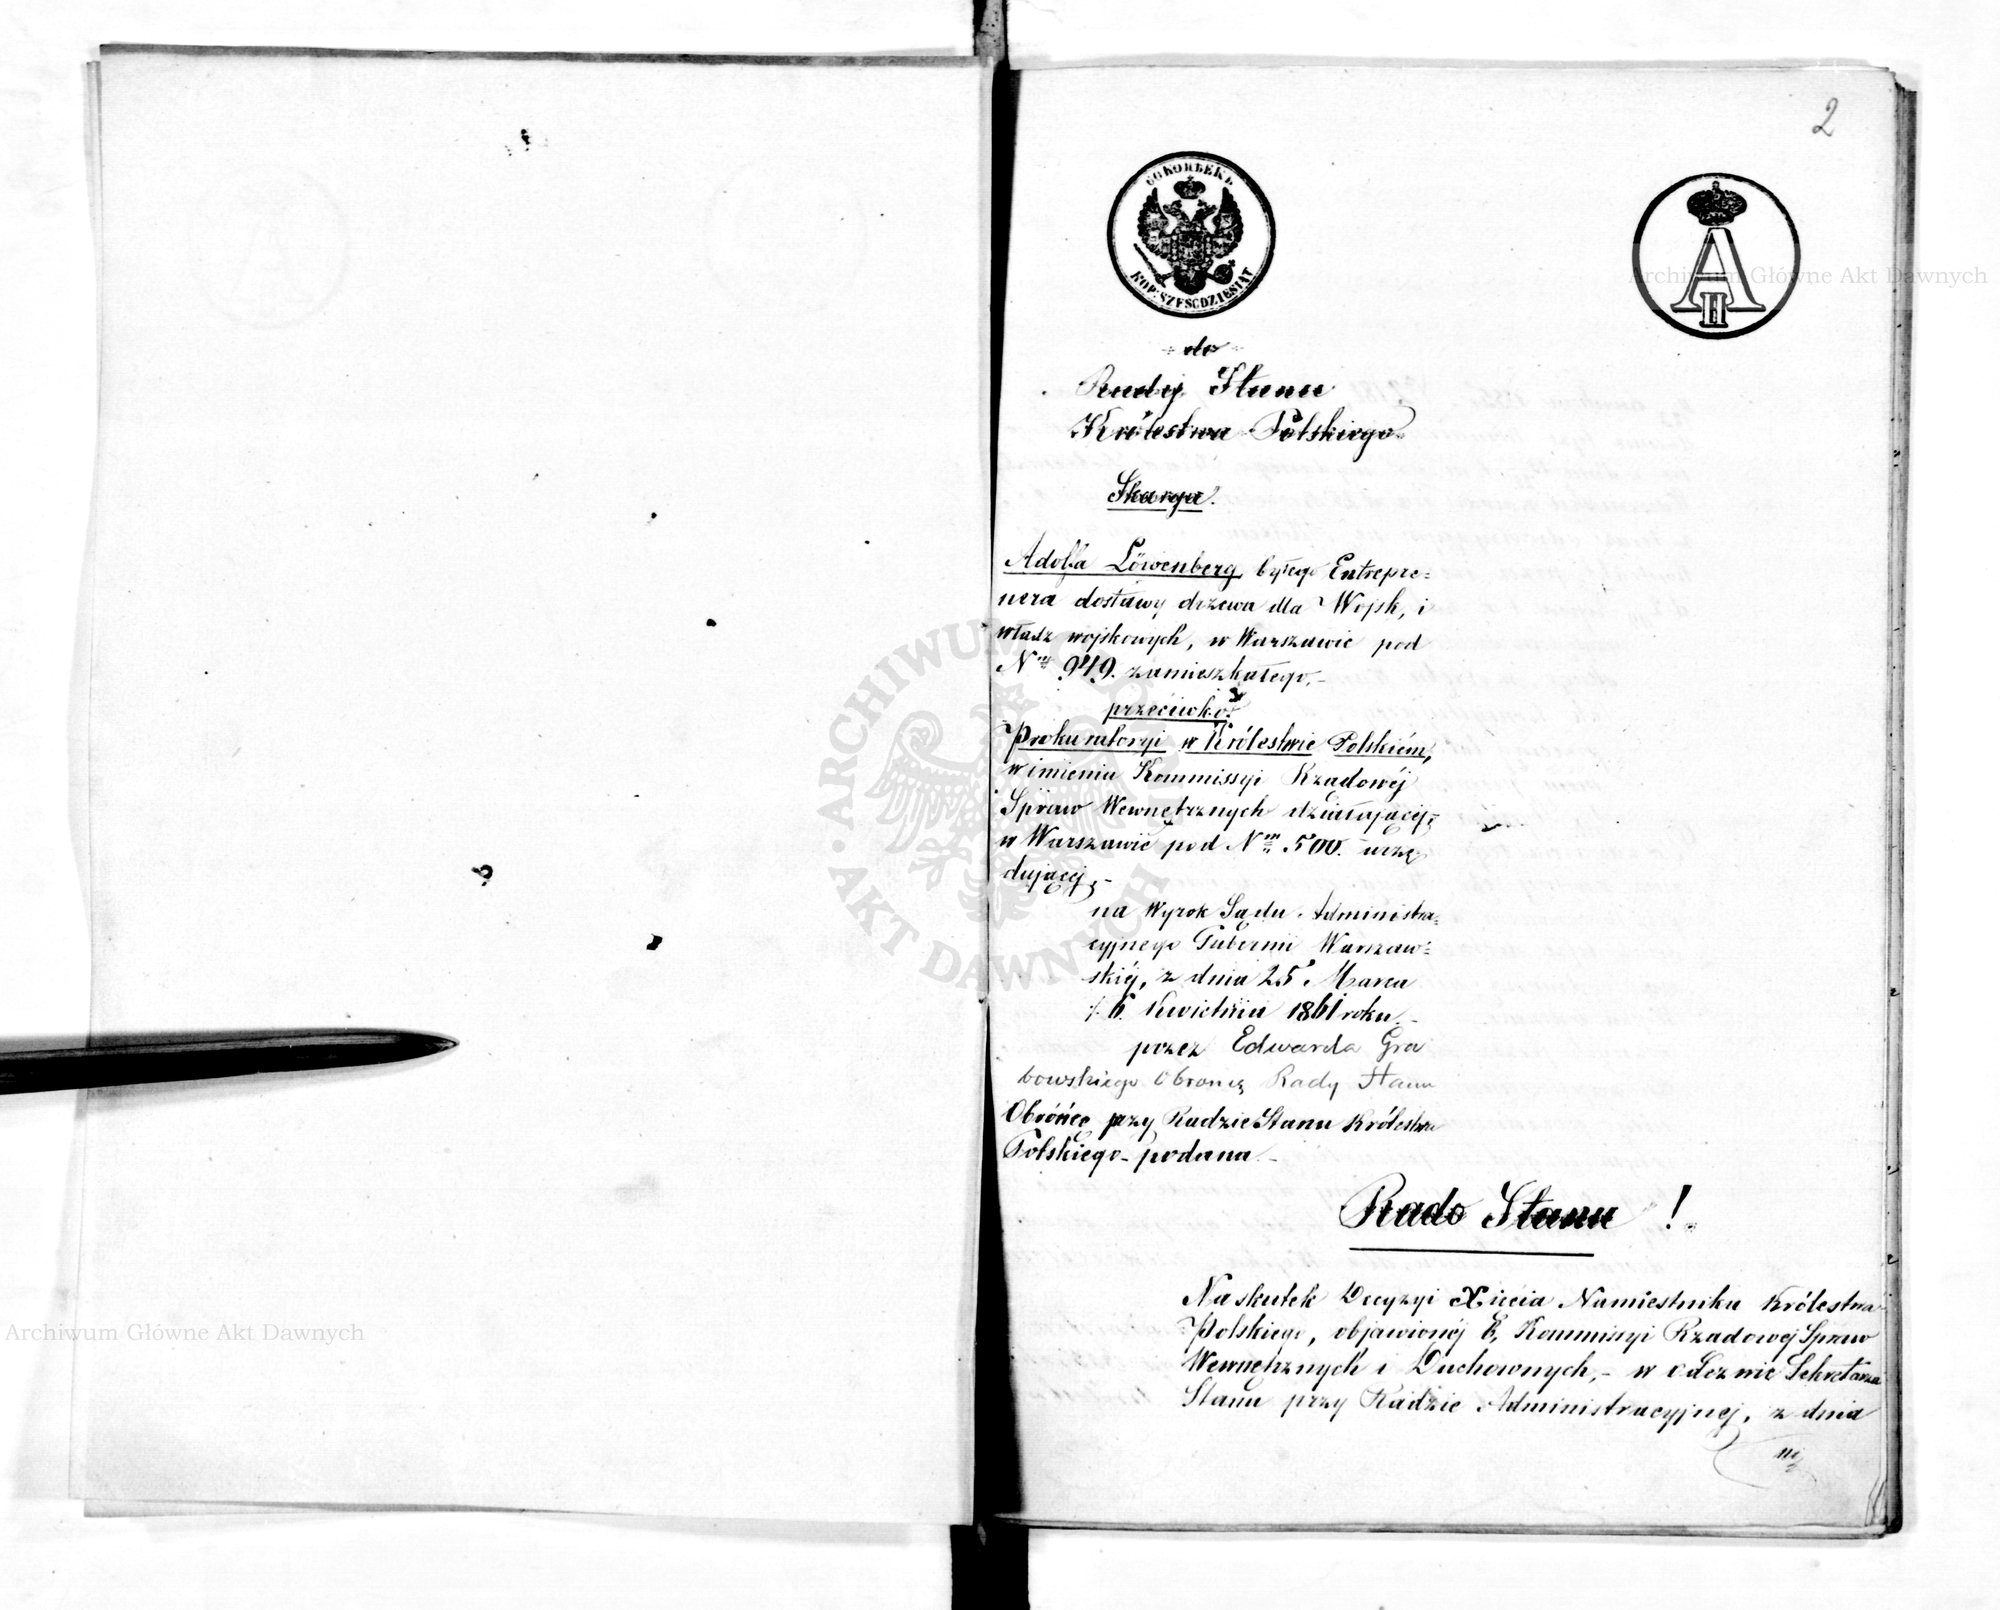 2
60 КОПѢЕКЪ
KOP: SZEŚĆDZIESIĄT
A II
do
Rady Stanu
Królestwa Polskiego
Skarga.
Adolfa Löwenberg, byłego Entrepre=
nera dostawy drzewa dla Wojsk, i
władz wojskowych, w Warszawie pod
Nm 949. zamieszkałego,-
przeciwko
Prokuratoryi w Królestwie Polskiém,
w imieniu Kommissyi Rządowéj
Spraw Wewnętrznych działającej,
w Warszawie pod Nm 500. urzę-
dującej,-
na Wyrok Sądu Administra=
cyjnego Gubernii Warszaw=
skiéj, z dnia 25 Marca
/ 6. Kwietnia 1861 roku.-
przez Edwarda Gra
bowskiego Obrońcę Rady Stanu
Obrońcę przy Radzie Stanu Królestwa
Polskiego - podana -
Rado Stanu !
Na skutek Decyzyi Xięcia Namiestnika Królestwa
Polskiego, objawionéj b. Kommissyi Rządowej Spraw
Wewnętrznych i Duchownych,- w odezwie Sekretarza
Stanu przy Radzie Administracyjnej, z dnia
Archiwum Główne Akt Dawnych
Archiwum Główne Akt Dawnych
ARCHIWUM GŁÓWNE AKT DAWNYCH